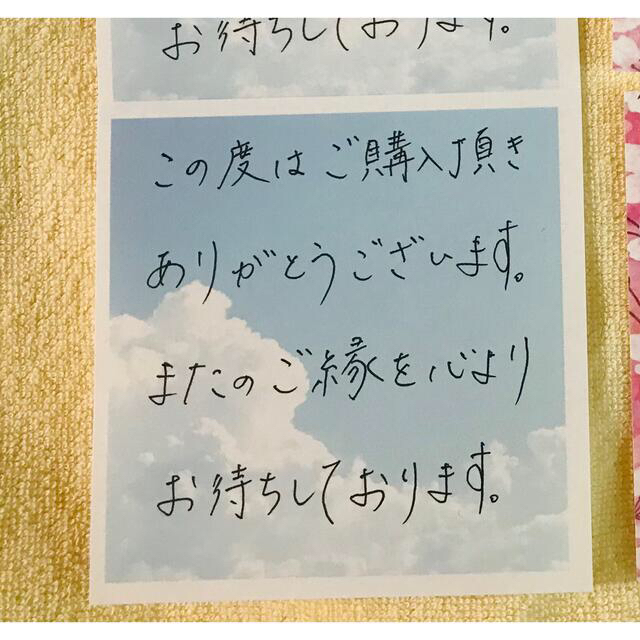 お待ちしております。
この度はご購入頂き
ありがとうございます。
またのご縁を心より
お待ちしております。